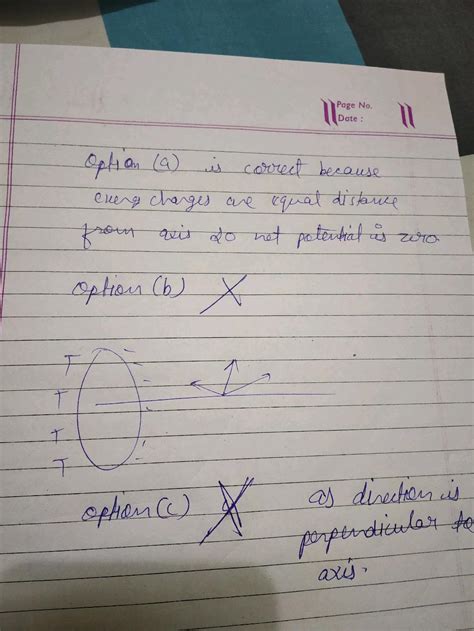 Page No.
Date :
Option (a) is correct because
every charges are equal distance
from axis so net potential is zero
option (b) X
T
T
T
T
option (c) X
as direction is
perpendicular to
axis.